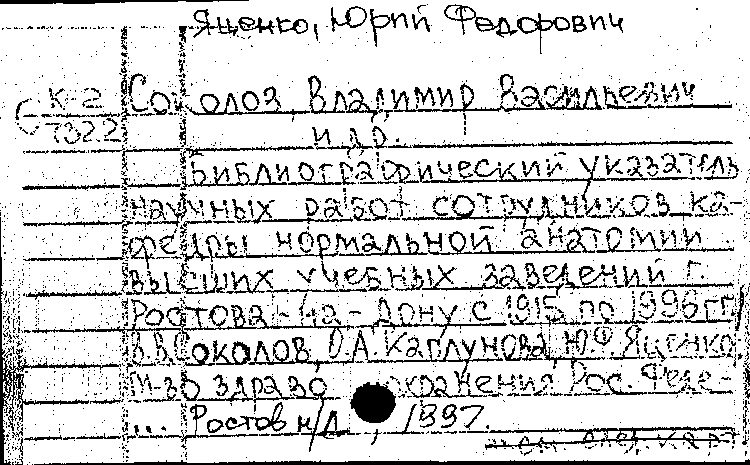 Яценко, Юрий Федорович
К-2
7322
Соколов, Владимир Васильевич
и др.
Библиографический указатель
научных работ сотрудников ка-
федры нормальной анатомии
высших учебных заведений г.
Ростова-на-Дону с 1915 по 1996 гг /
В.В.Соколов, О.А.Каплунова, Ю.Ф.Яценко.
М-во здравоохранения Рос. Феде-
... Ростов н/Д , 1997.
см. след. карт.